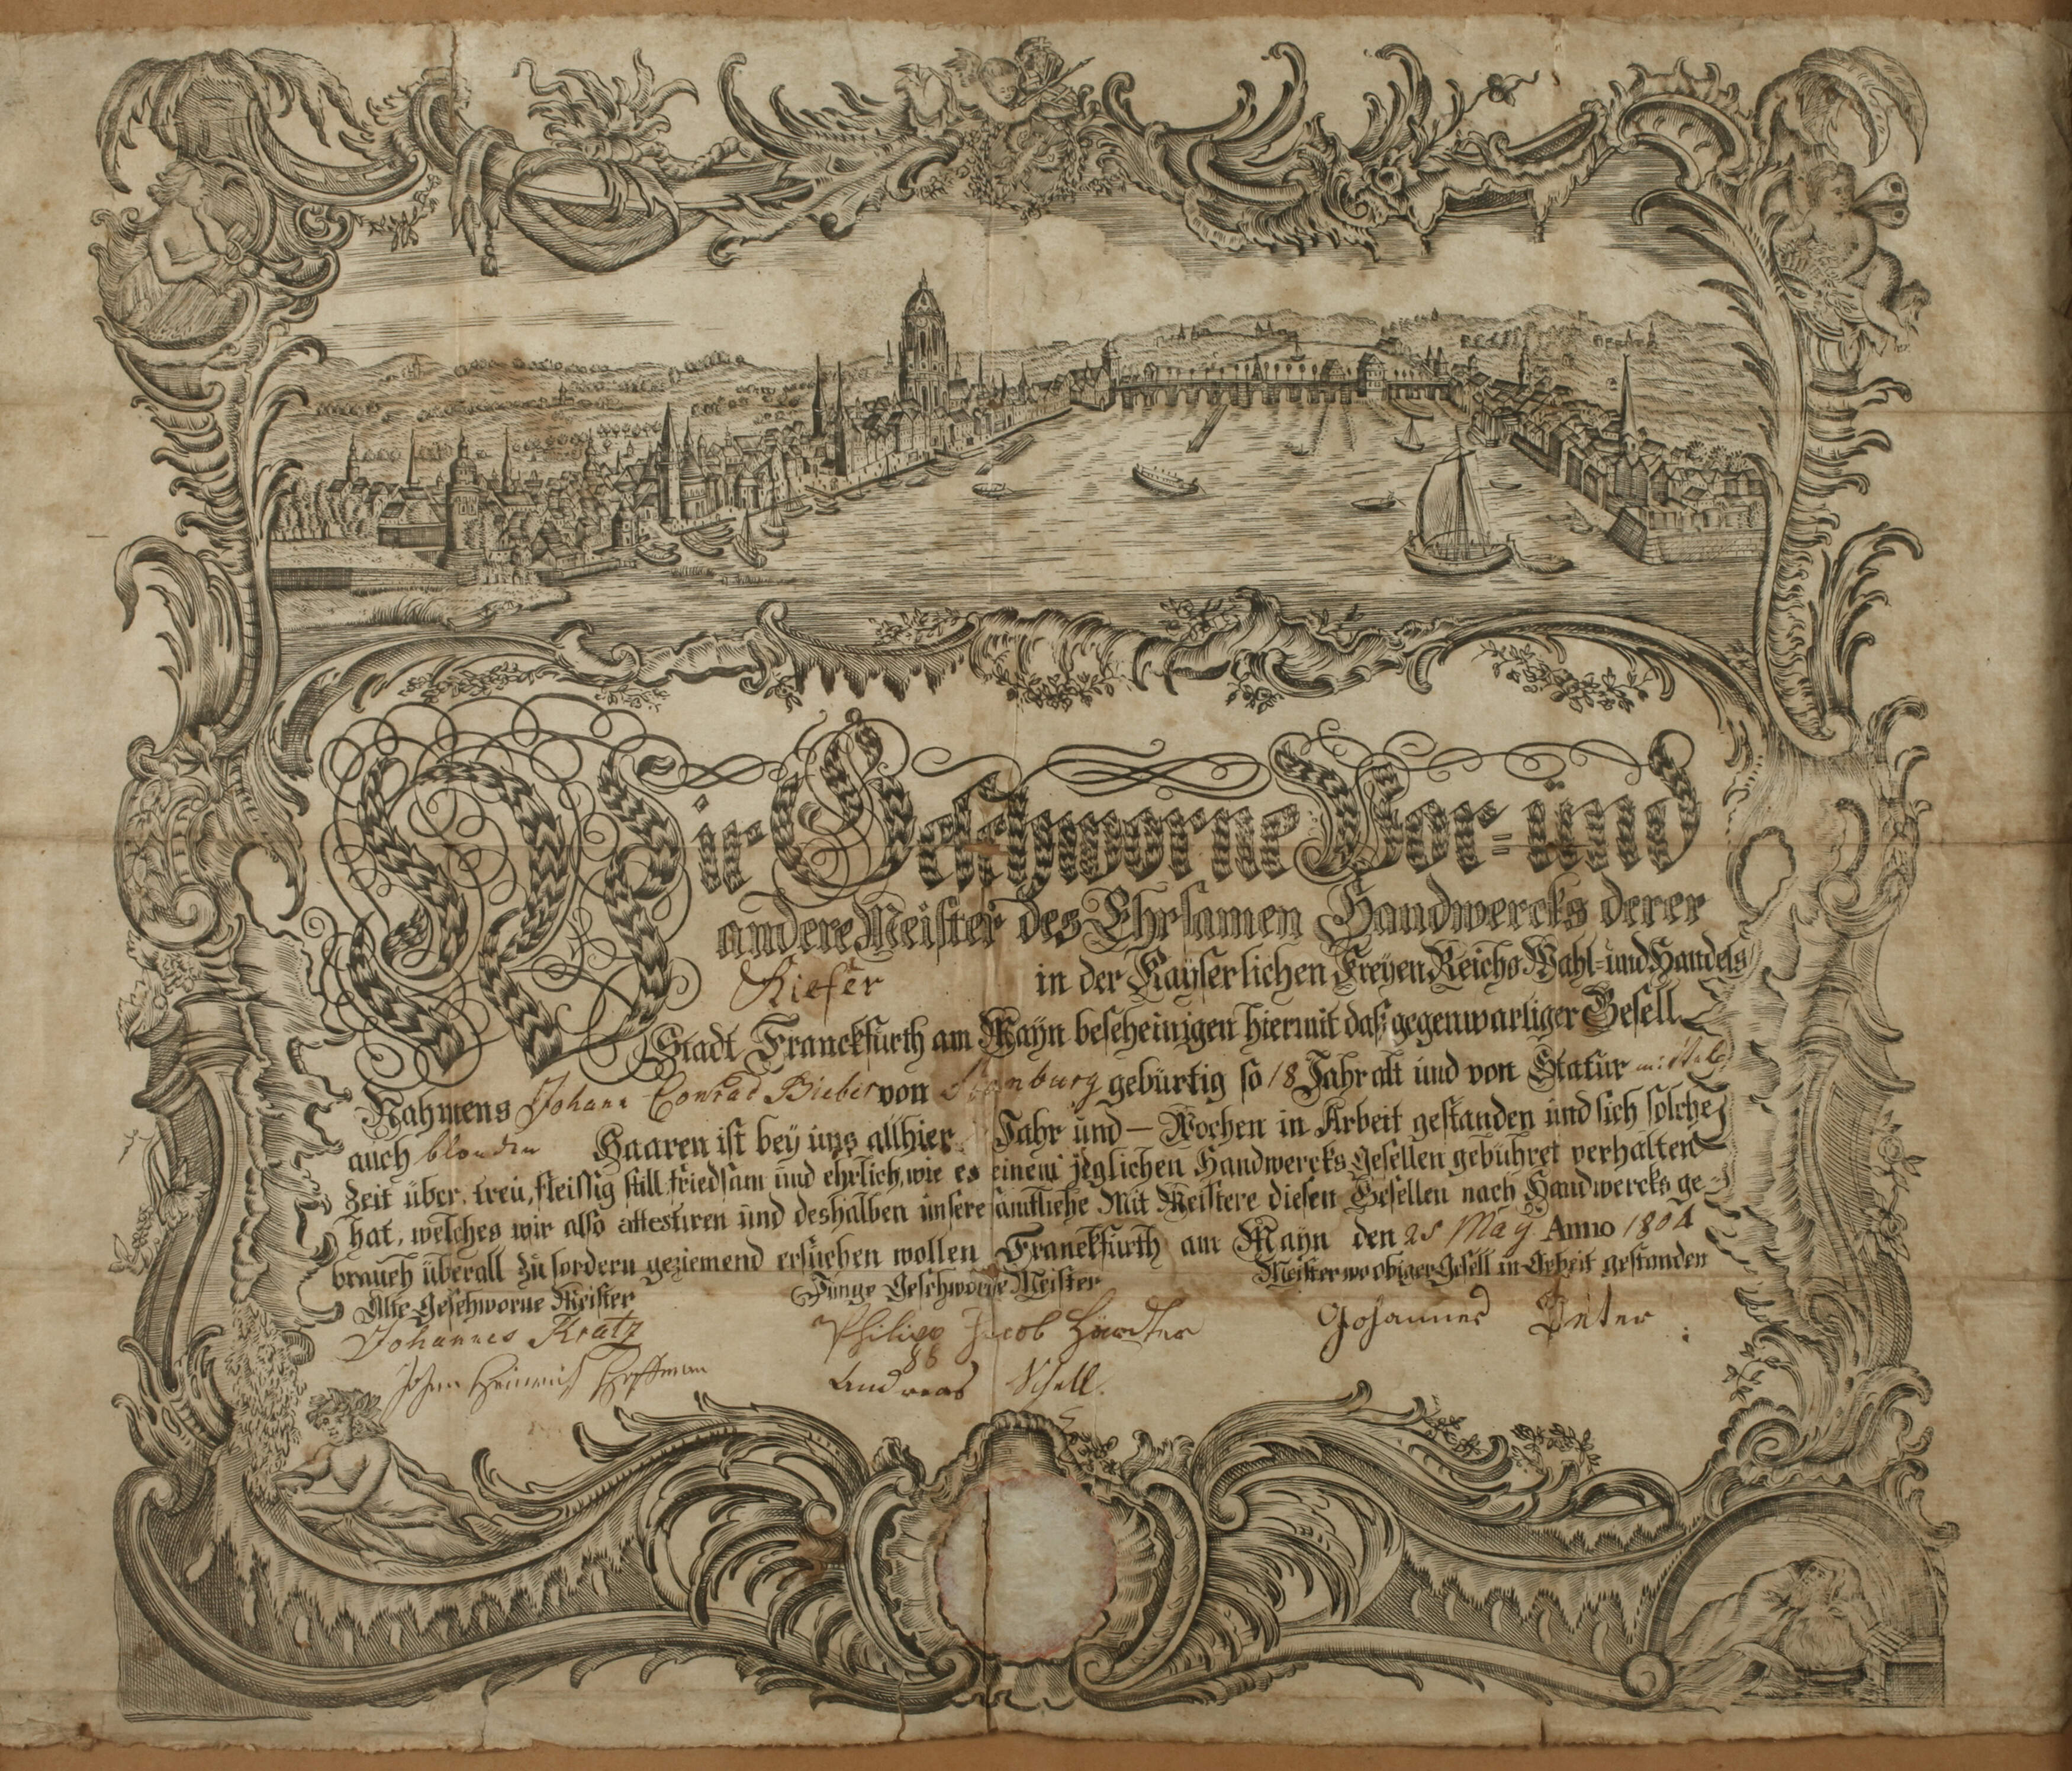 Wir Geschworne Vor= und
andere Meister des Ehrsamen Handwercks derer
Kiefer in der Kayserlichen Freyen Reichs Wahl= und Handels
Stadt Franckfurth am Mayn bescheinigen hiermit daß gegenwartiger Gesell
Nahmens Johann Conrad Bieber von gebürtig so 18 Jahr alt und von Statur
auch blonden Haaren ist bey uns allhier Jahr und — Wochen in Arbeit gestanden und sich solche
Zeit über, treu, fleissig still friedsam und ehrlich, wie es einem jeglichen Handwercks Gesellen gebühret verhalten
hat, welches wir also attestiren und deshalben unsere samtliche Mit Meistere diesen Gesellen nach Handwercks ge=
brauch überall zu fordern geziemend ersuchen wollen Franckfurth am Mayn den 25 May Anno 1804
Alte Geschworne Meister Junge Geschworne Meister Meister wo obiger Gesell in Arbeit gestanden
Johannes Kratz Philipp Jacob Johannes Peter
Johan Heinrich Hoffman Andreas Schell